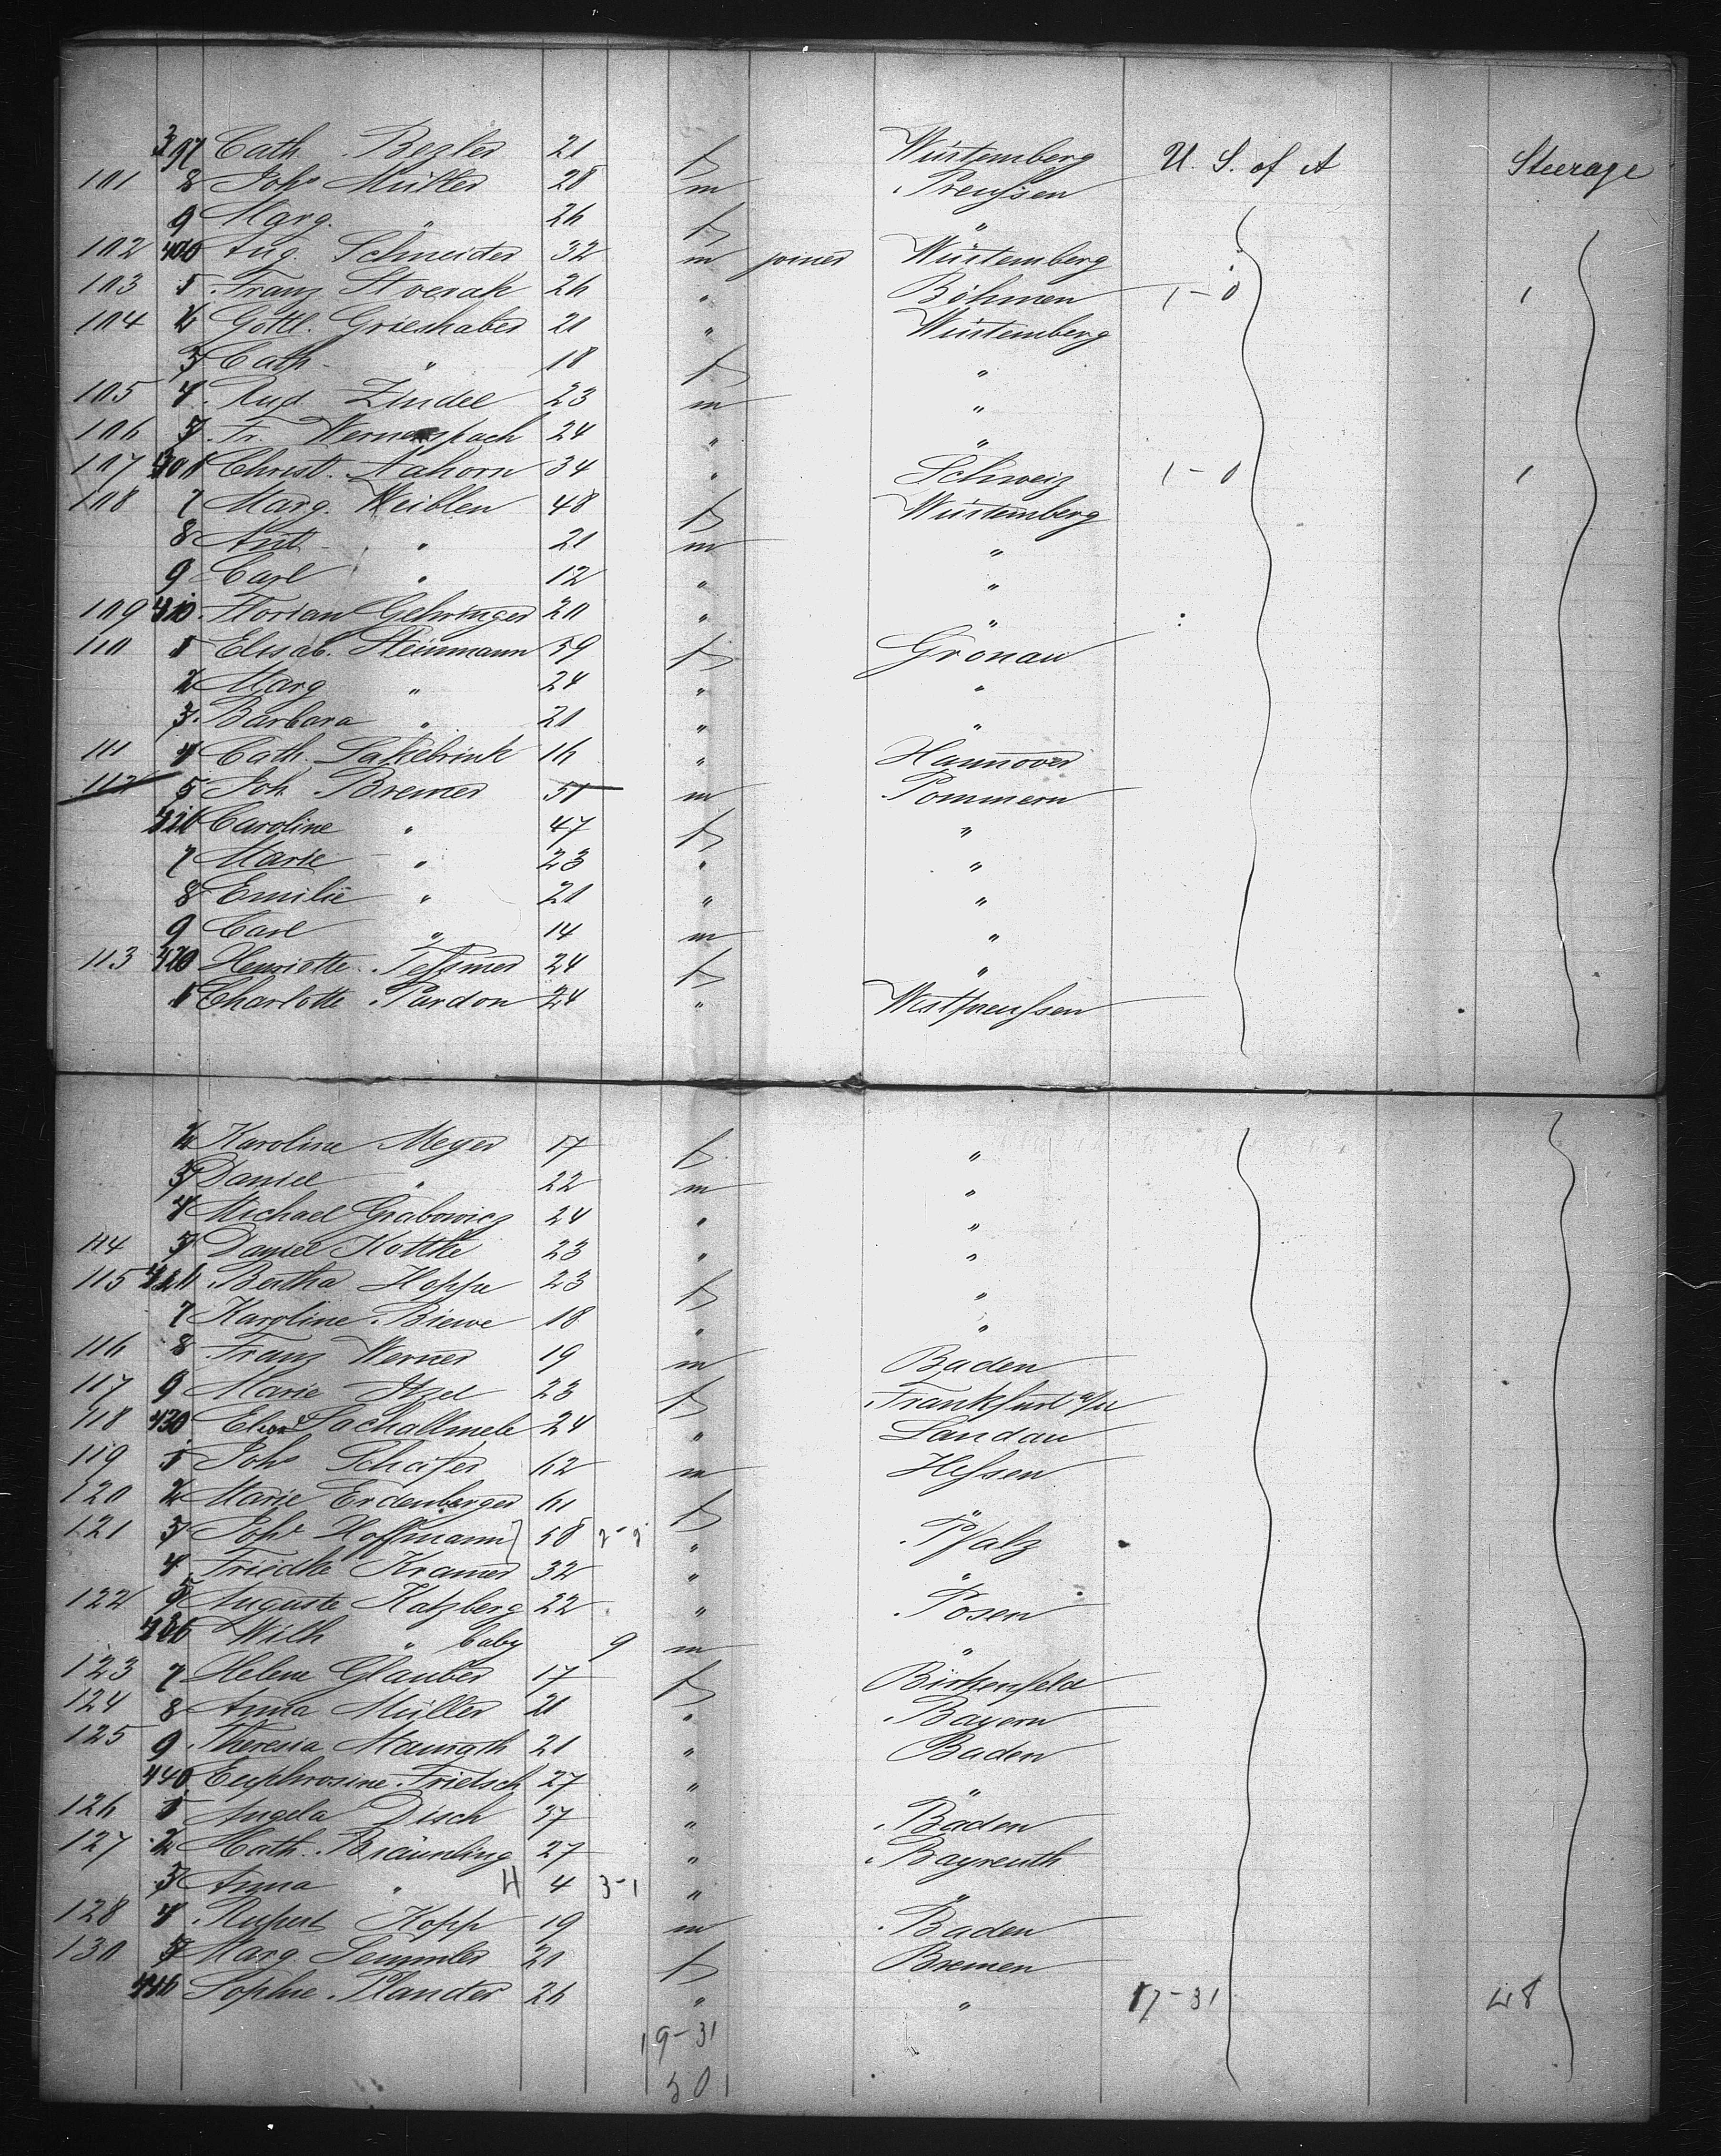 397 Cath. Bezler 21 f Würtemberg U. S. of A Steerage
101 8 Johs Müller 28 m Preußen
9 Marg. " 26 f "
102 400 Aug. Schneider 32 m joiner Würtemberg
103 1 Franz Stverak 26 " Böhmen 1-0 1
104 2 Gottl. Grieshaber 21 " Würtemberg
3 Cath. " 18 f "
105 4 Rud. Zindel 23 m "
106 5 Fr. Wernerspach 24 " "
107 Christ. Aahorn 34 " Schweiz 1-0 1
108 7 Marg. Weiblen 48 f Würtemberg
8 Ant. " 21 m "
9 Carl " 12 " "
109 410 Florian Gehringer 20 " "
110 1 Elisab. Steinmann 59 f Gronau
2 Marg " 24 " "
3 Barbara " 21 " "
111 4 Cath. Sakebrink 16 " Hannover
112 5 Joh. Bremer 51 m Pommern
416 Caroline " 47 f "
7 Marie " 23 " "
8 Emilie " 21 " "
9 Carl " 14 m "
113 420 Henriette Teßmer 24 f "
1 Charlotte Pardon 24 " Westpreußen
2 Karoline Meyer 17 f "
3 Daniel " 22 m "
4 Michael Grabowicz 24 " "
114 5 Daniel Kottke 23 " "
115 426 Bertha Hoppe 23 f "
7 Karoline Biewe 18 " "
116 8 Franz Werner 19 m Baden
117 9 Marie Itzel 23 f Frankfurt a/M
118 430 24 " Landau
119 1 Johs Schäfer 62 m Hessen
120 2 Marie Erdenberger 61 f
121 3 Johs Hoffmann 58 " Pfalz
4 Friedke Kramer 32 " "
122 5 Auguste Katzberg 22 " Posen
436 Wilh " baby 9 m "
123 7 Helene Glauber 17 f Birkenfeld
124 8 Anna Müller 21 " Bayern
125 9 Theresia Maurath 21 " Baden
440 Euphrosine Frietsch 27 " "
126 1 Angela Disch 37 " Baden
127 2 Math. Bräunling 27 " Bayreuth
3 Anna " 4 4 3-1 " "
128 4 Rupert Kopp 19 m Baden
130 5 Marg. Semmler 21 f Bremen
446 Sophie Plander 26 " " 17-31 48
19-31
50